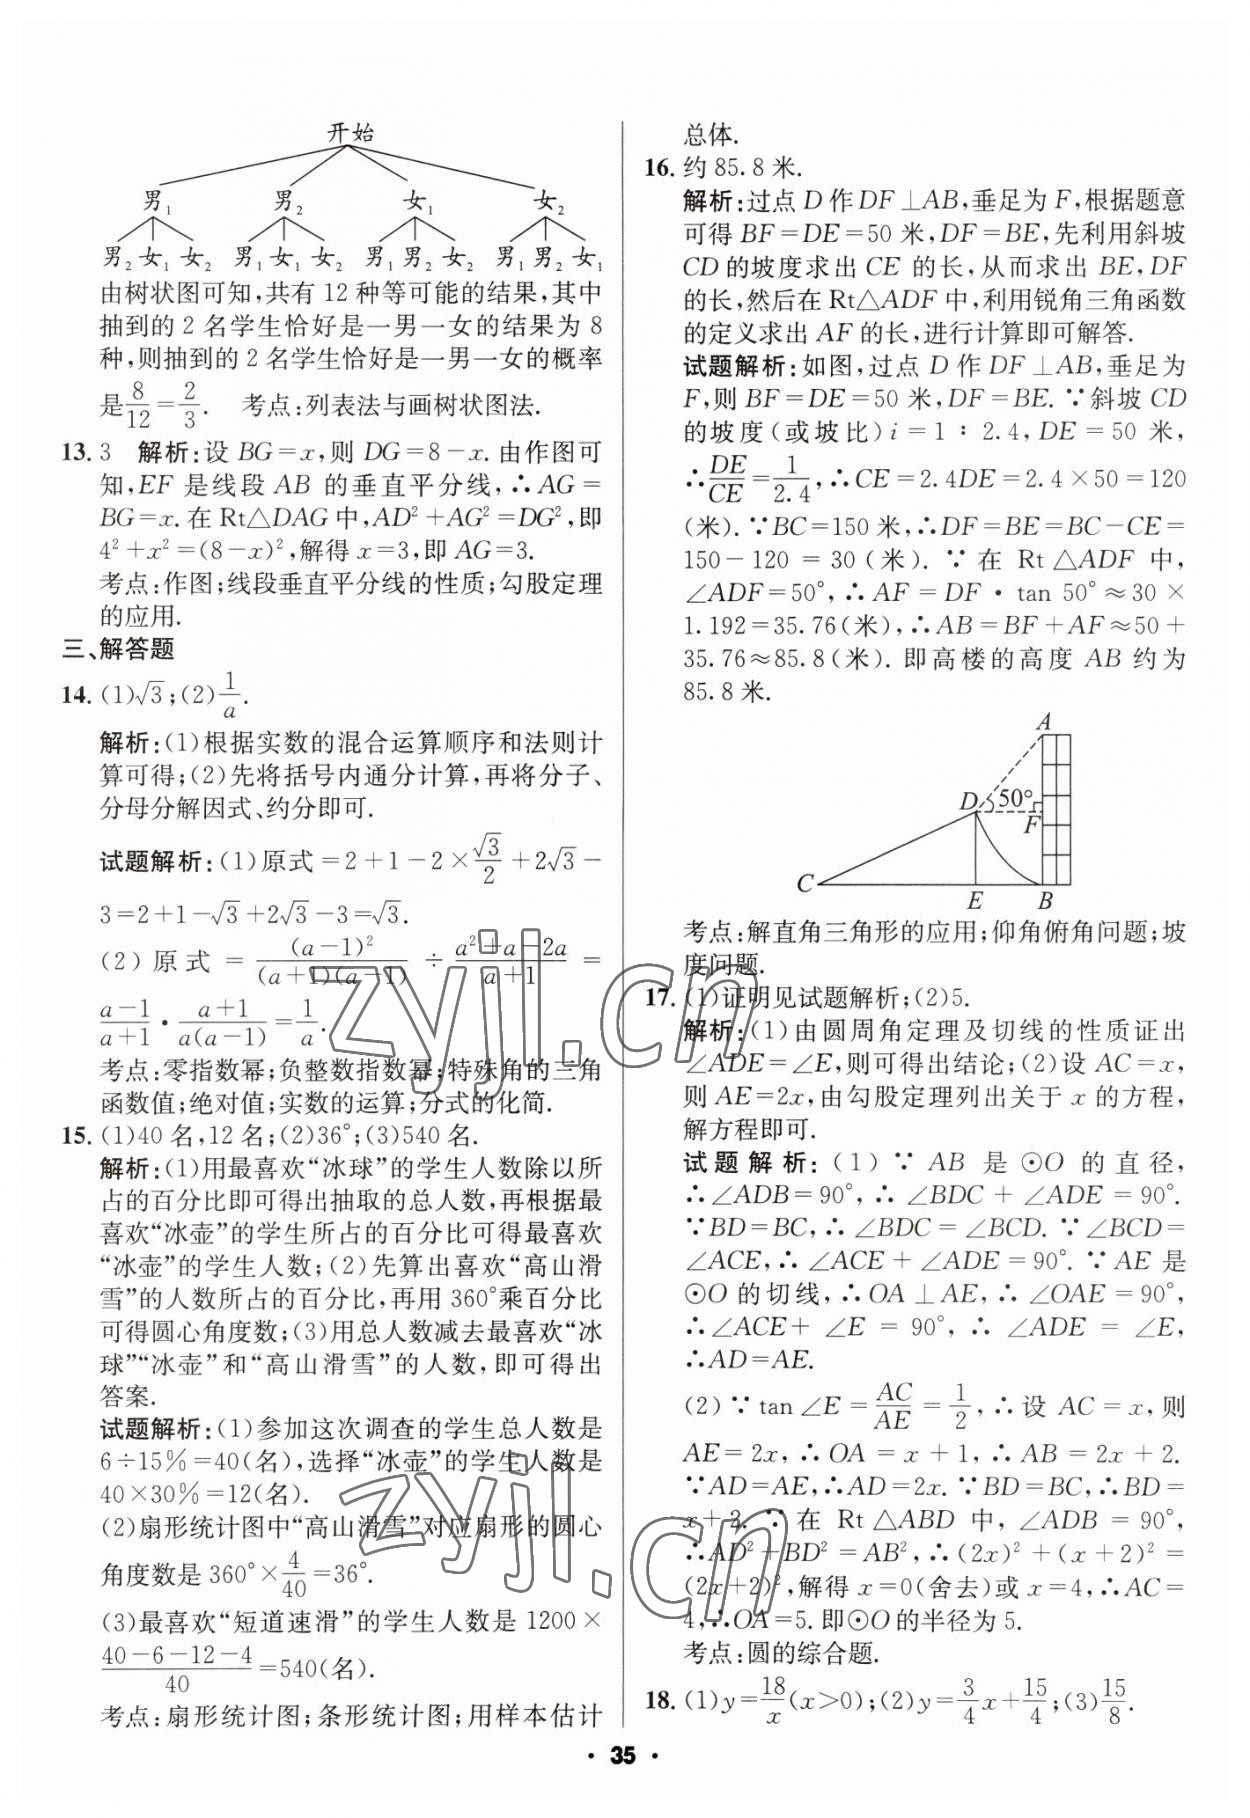 开始
男₁ 男₂ 女₁ 女₂
男₂ 女₁ 女₂ 男₁ 女₁ 女₂ 男₁ 男₂ 女₂ 男₁ 男₂ 女₁
由树状图可知,共有 12 种等可能的结果,其中
抽到的 2 名学生恰好是一男一女的结果为 8
种,则抽到的 2 名学生恰好是一男一女的概率
是8/12=2/3. 考点:列表法与画树状图法.
13. 3 解析:设 BG=x,则 DG=8-x. 由作图可
知,EF 是线段 AB 的垂直平分线,∴AG=
BG=x. 在 Rt△DAG 中,AD²+AG²=DG²,即
4²+x²=(8-x)²,解得 x=3,即 AG=3.
考点:作图;线段垂直平分线的性质;勾股定理
的应用.
三、解答题
14. (1)√3;(2)1/a.
解析:(1)根据实数的混合运算顺序和法则计
算可得;(2)先将括号内通分计算,再将分子、
分母分解因式、约分即可.
试题解析:(1)原式=2+1-2×√3/2+2√3-
3=2+1-√3+2√3-3=√3.
(2)原式=(a-1)²/(a+1)(a-1)÷(a²+a-2a)/(a+1)=
(a-1)/(a+1)·(a+1)/a(a-1)=1/a.
考点:零指数幂;负整数指数幂;特殊角的三角
函数值;绝对值;实数的运算;分式的化简.
15. (1)40 名,12 名;(2)36°;(3)540 名.
解析:(1)用最喜欢“冰球”的学生人数除以所
占的百分比即可得出抽取的总人数,再根据最
喜欢“冰壶”的学生所占的百分比可得最喜欢
“冰壶”的学生人数;(2)先算出喜欢“高山滑
雪”的人数所占的百分比,再用 360°乘百分比
可得圆心角度数;(3)用总人数减去最喜欢“冰
球”“冰壶”和“高山滑雪”的人数,即可得出
答案.
试题解析:(1)参加这次调查的学生总人数是
6÷15%=40(名),选择“冰壶”的学生人数是
40×30%=12(名).
(2)扇形统计图中“高山滑雪”对应扇形的圆心
角度数是 360°×4/40=36°.
(3)最喜欢“短道速滑”的学生人数是 1200×
(40-6-12-4)/40=540(名).
考点:扇形统计图;条形统计图;用样本估计
总体.
16. 约 85.8 米.
解析:过点 D 作 DF⊥AB,垂足为 F,根据题意
可得 BF=DE=50 米,DF=BE,先利用斜坡
CD 的坡度求出 CE 的长,从而求出 BE,DF
的长,然后在 Rt△ADF 中,利用锐角三角函数
的定义求出 AF 的长,进行计算即可解答.
试题解析:如图,过点 D 作 DF⊥AB,垂足为
F,则 BF=DE=50 米,DF=BE. ∵斜坡 CD
的坡度(或坡比)i=1∶2.4,DE=50 米,
∴DE/CE=1/2.4,∴CE=2.4DE=2.4×50=120
(米). ∵BC=150 米,∴DF=BE=BC-CE=
150-120=30(米). ∵在 Rt△ADF 中,
∠ADF=50°,∴AF=DF·tan 50°≈30×
1.192=35.76(米),∴AB=BF+AF≈50+
35.76≈85.8(米). 即高楼的高度 AB 约为
85.8 米.
A
D 50° F
C E B
考点:解直角三角形的应用;仰角俯角问题;坡
度问题.
17. (1)证明见试题解析;(2)5.
解析:(1)由圆周角定理及切线的性质证出
∠ADE=∠E,则可得出结论;(2)设 AC=x,
则 AE=2x,由勾股定理列出关于 x 的方程,
解方程即可.
试题解析:(1)∵AB 是⊙O 的直径,
∴∠ADB=90°,∴∠BDC+∠ADE=90°.
∵BD=BC,∴∠BDC=∠BCD. ∵∠BCD=
∠ACE,∴∠ACE+∠ADE=90°. ∵AE 是
⊙O 的切线,∴OA⊥AE,∴∠OAE=90°,
∴∠ACE+∠E=90°,∴∠ADE=∠E,
∴AD=AE.
(2)∵tan∠E=AC/AE=1/2,∴设 AC=x,则
AE=2x,∴OA=x+1,∴AB=2x+2.
∵AD=AE,∴AD=2x. ∵BD=BC,∴BD=
x+2. ∵在 Rt△ABD 中,∠ADB=90°,
∴AD²+BD²=AB²,∴(2x)²+(x+2)²=
(2x+2)²,解得 x=0(舍去)或 x=4,∴AC=
4,∴OA=5. 即⊙O 的半径为 5.
考点:圆的综合题.
18. (1)y=18/x(x>0);(2)y=3/4x+15/4;(3)15/8.
· 35 ·
zyjl.cn
zyjl.cn